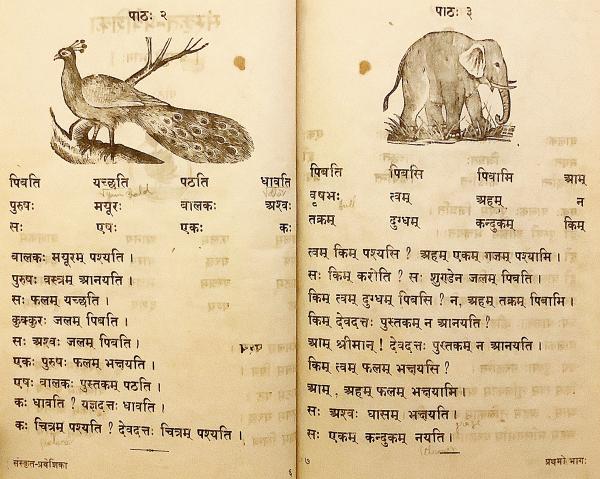 पाठः २
पिबति यच्छति पठति धावति
पुरुषः मयूरः बालकः अश्वः
सः एषः एकः कः
बालकः मयूरम् पश्यति ।
पुरुषः वस्त्रम् आनयति ।
सः फलम् यच्छति ।
कुक्कुरः जलम् पिबति ।
सः अश्वः जलम् पिबति ।
एकः पुरुषः फलम् भक्षयति ।
एषः बालकः पुस्तकम् पठति ।
कः धावति ? यज्ञदत्तः धावति ।
कः चित्रम् पश्यति ? देवदत्तः चित्रम् पश्यति ।
संस्कृत-प्रवेशिका
६
पाठः ३
पिबति पिबसि पिबामि आम्
वृषभः त्वम् अहम् न
तक्रम् दुग्धम् कन्दुकम् किम्
त्वम् किम् पश्यसि ? अहम् एकम् गजम् पश्यामि ।
सः किम् करोति ? सः शुण्डेन जलम् पिबति ।
किम् त्वम् दुग्धम् पिबसि ? न, अहम् तक्रम् पिबामि ।
किम् देवदत्तः पुस्तकम् न आनयति ?
आम् श्रीमान् ! देवदत्तः पुस्तकम् न आनयति ।
किम् त्वम् फलम् भक्षयसि ?
आम्, अहम् फलम् भक्षयामि ।
सः अश्वः घासम् भक्षयति ।
सः एकम् कन्दुकम् नयति ।
७
प्रथमो भागः